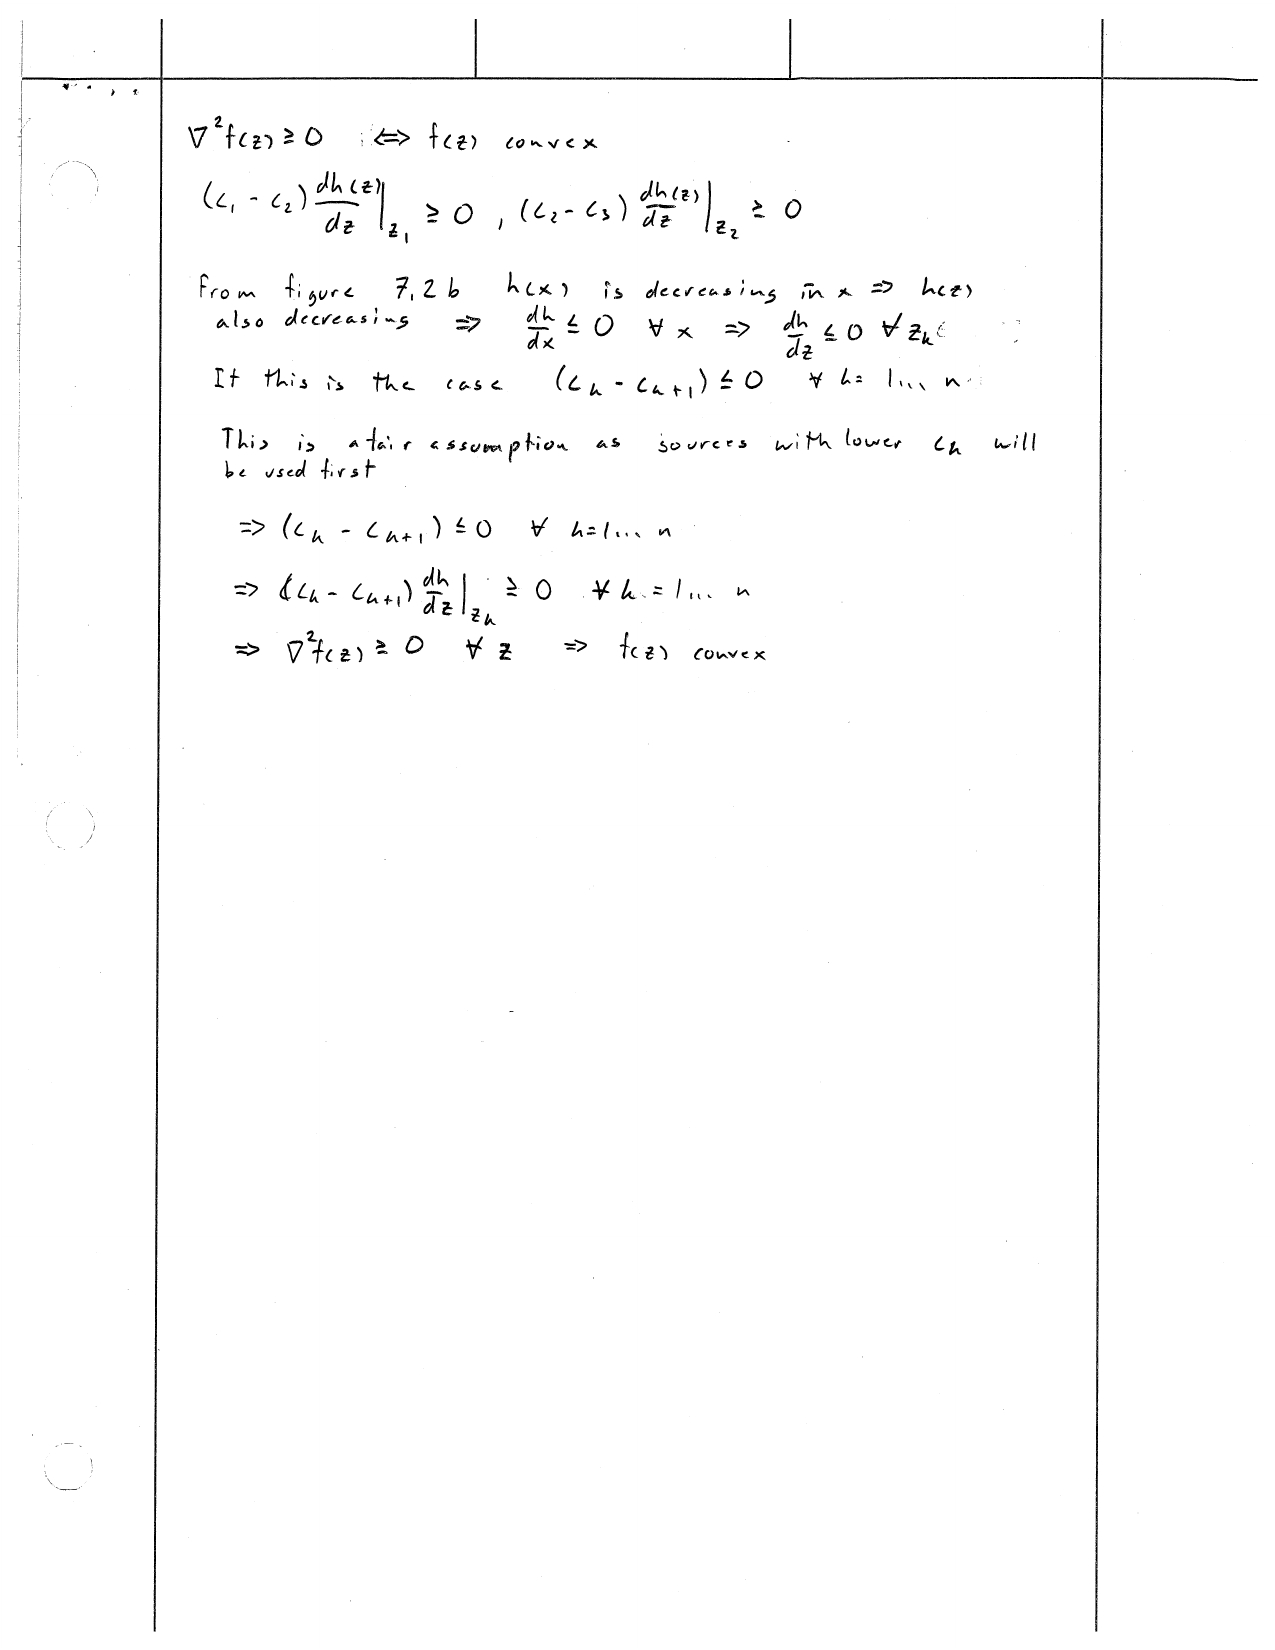 ∇²f(z) ≥ 0 ⇔ f(z) convex
(c₁ - c₂) dh(z)/dz |z₁ ≥ 0 , (c₂ - c₃) dh(z)/dz |z₂ ≥ 0
From figure 7,2 b h(x) is decreasing in x ⇒ h(z)
also decreasing ⇒ dh/dx ≤ 0 ∀ x ⇒ dh/dz ≤ 0 ∀ zₖ
If this is the case (cₖ - cₖ₊₁) ≤ 0 ∀ k = 1... n
This is a fair assumption as sources with lower cₖ will
be used first
⇒ (cₖ - cₖ₊₁) ≤ 0 ∀ k = 1... n
⇒ (cₖ - cₖ₊₁) dh/dz |zₖ ≥ 0 ∀ k = 1... n
⇒ ∇²f(z) ≥ 0 ∀ z ⇒ f(z) convex